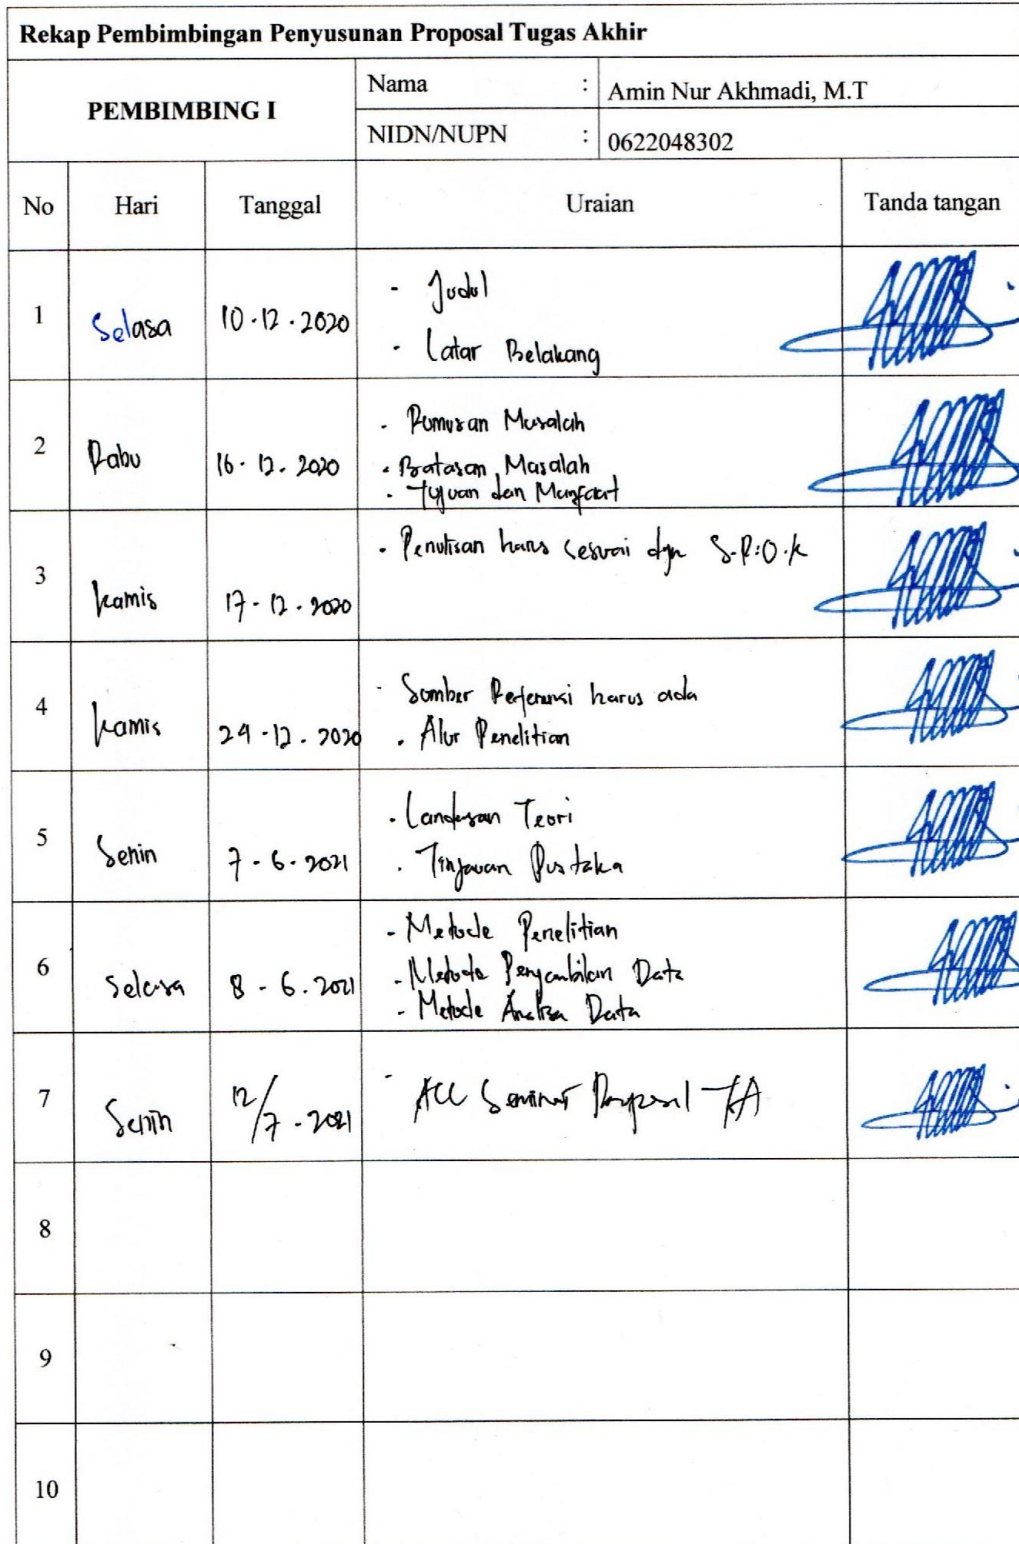 Rekap Pembimbingan Penyusunan Proposal Tugas Akhir
PEMBIMBING I
Nama : Amin Nur Akhmadi, M.T
NIDN/NUPN : 0622048302
No Hari Tanggal Uraian Tanda tangan
1 Selasa 10-12-2020 - Judul
- Latar Belakang
2 Rabu 16-12-2020 - Rumusan Masalah
- Batasan Masalah
- Tujuan dan Manfaat
3 Kamis 17-12-2020 - Penulisan harus sesuai dgn S.P.O.K
4 Kamis 24-12-2020 - Sumber Referensi harus ada
- Alur Penelitian
5 Senin 7-6-2021 - Landasan Teori
- Tinjauan Pustaka
6 Selasa 8-6-2021 - Metode Penelitian
- Metode Pengambilan Data
- Metode Analisa Data
7 Senin 12/7-2021 - ACC Seminar Proposal TA
8
9
10